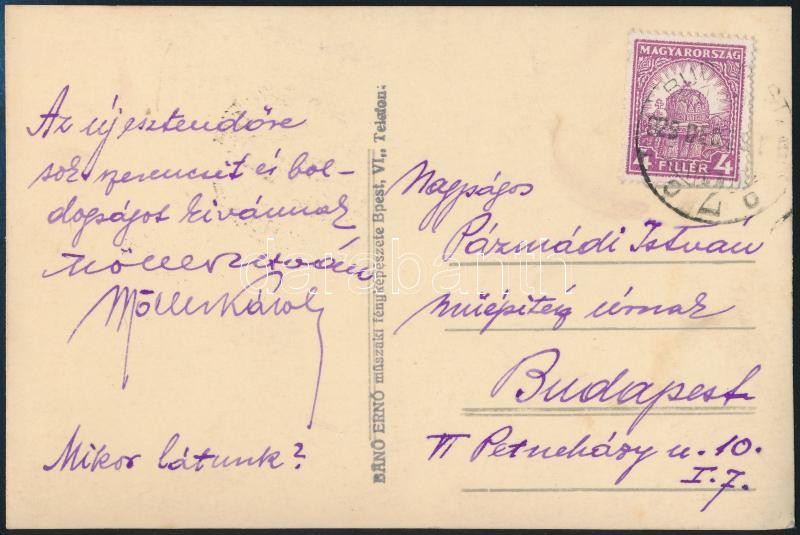 Az új esztendőre
sok szerencsét és bol-
dogságot kivánnak
Möller István
Möller Károly
Mikor látunk?
BÁNÓ ERNŐ műszaki fényképészete Bpest, VI., Telefon:
MAGYARORSZÁG
4 FILLÉR 4
925 DEC.
Nagyságos
Pázmádi István
műépítész úrnak
Budapest
VI Petneházy u. 10.
I. 7.
darabanth